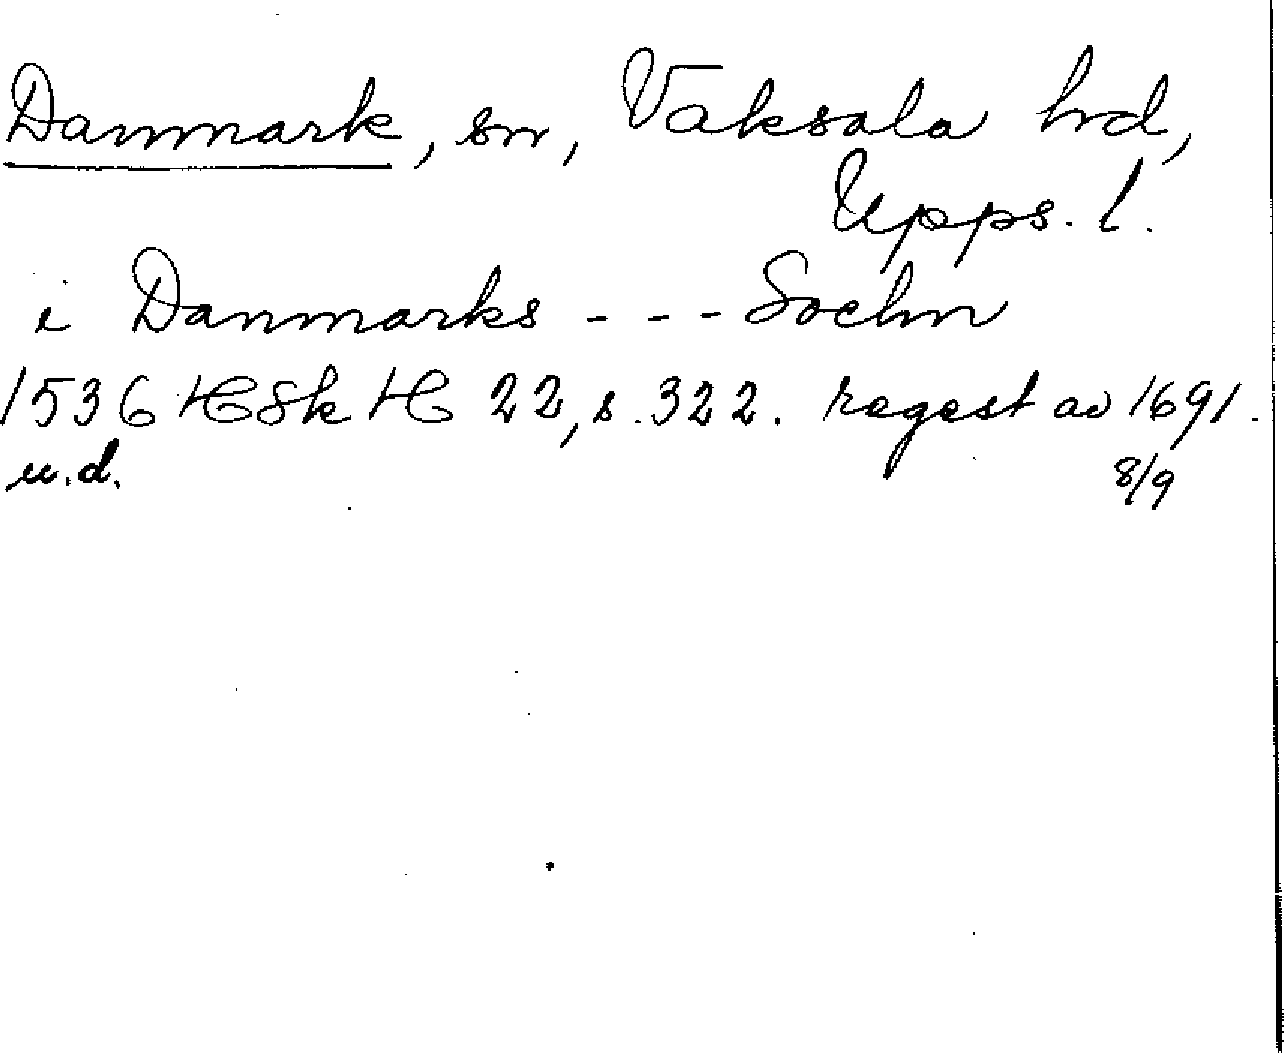 Danmark, sn, Vaksala hd,
Upps. l.
i Danmarks - - - Sochn
1536 HSk H 22, s. 322. regest av 1691.
u.d. 8/9